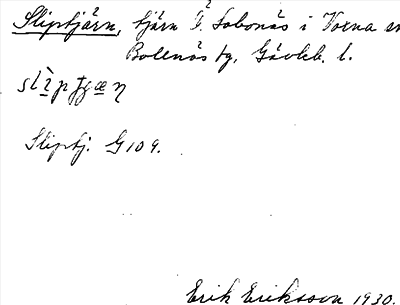 Sliptjärn, tjärn V. Lobonäs i Voxna sn
Bollnäs tg, Gävleb. l.
Sliptj. G 109.
Erik Eriksson 1930.